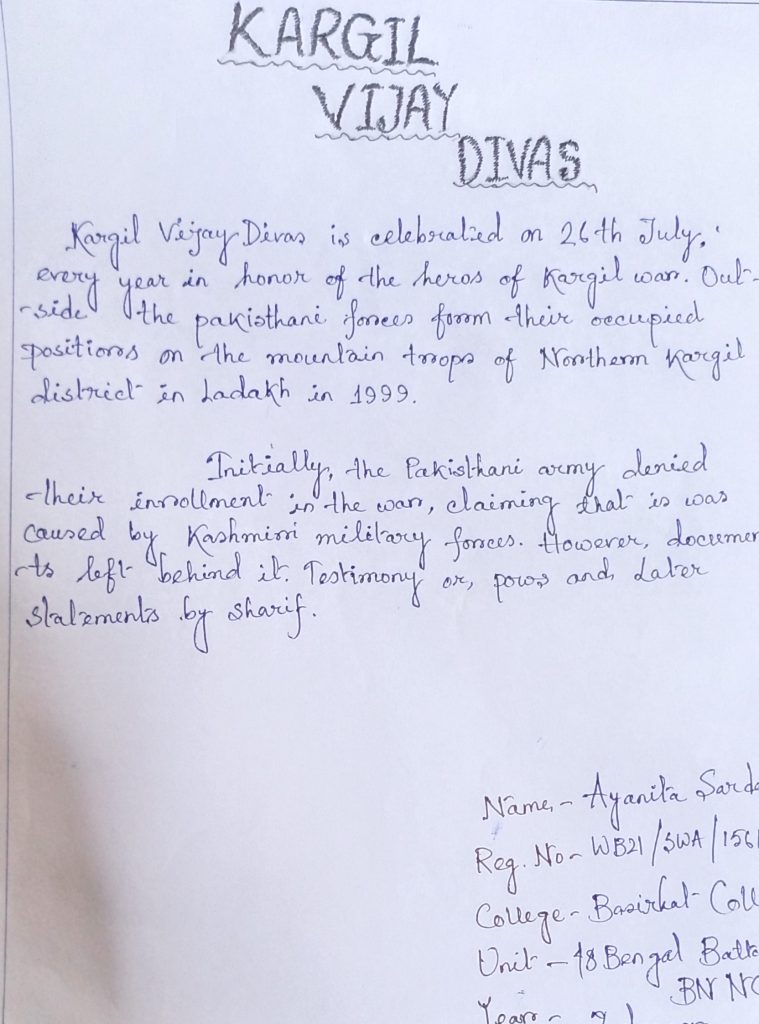 KARGIL
VIJAY
DIVAS
Kargil Vijay Divas is celebrated on 26th July,
every year in honor of the heros of Kargil war. Out-
-side the pakisthani forces form their occupied
positions on the mountain troops of Northern Kargil
district in Ladakh in 1999.
Initially, the Pakisthani army denied
their inrollment in the war, claiming that is was
caused by Kashmiri military forces. However, documen
-ts left behind it. Testimony or, pows and, Later
statements by sharif.
Name,- Ayanita Sarda
Reg. No- WB21/SWA/1561
College- Basirhat Coll
Unit - 48 Bengal Batta
BN NC
Year -